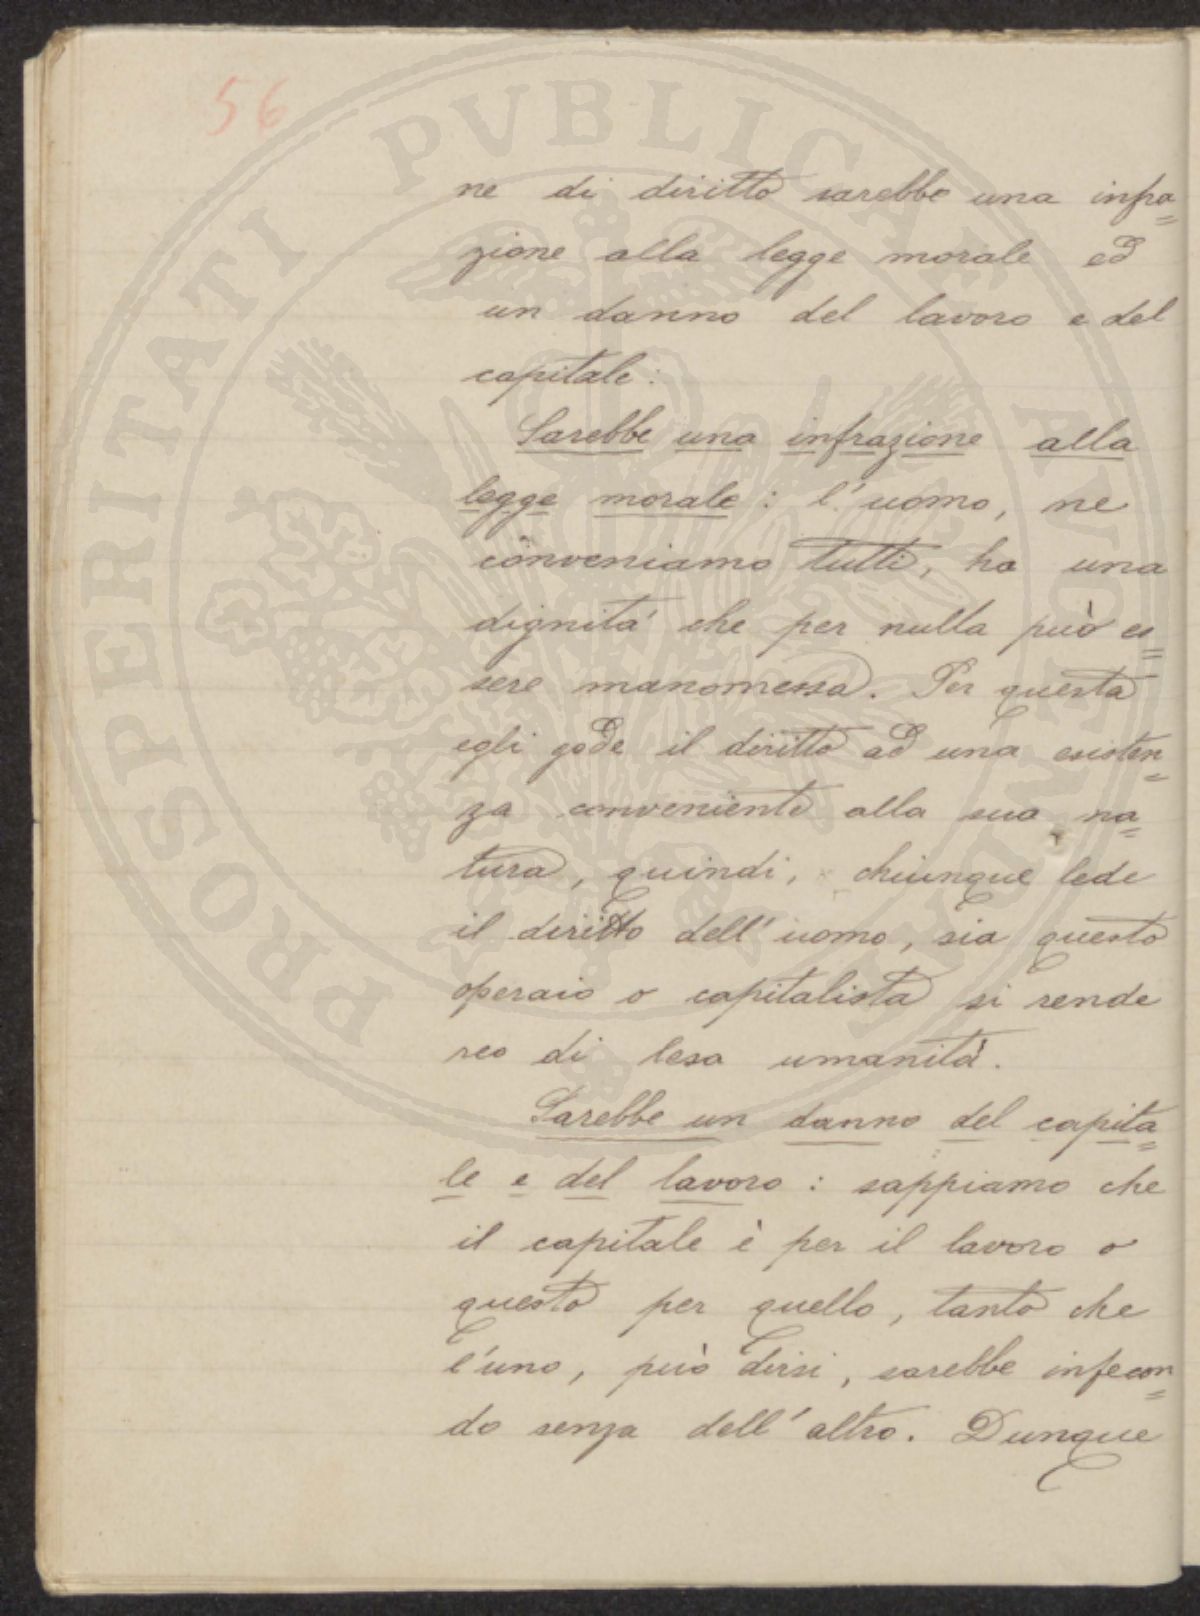 56
PROSPERITATI PVBLICAE
ne di diritto sarebbe una infra=
zione alla legge morale ed
un danno del lavoro e del
capitale:
Sarebbe una infrazione alla
legge morale: l'uomo, ne
conveniamo tutti, ha una
dignità che per nulla può es=
sere manomessa. Per questa
egli gode il diritto ad una esisten=
za conveniente alla sua na=
tura, quindi, chiunque lede
il diritto dell'uomo, sia questo
operaio o capitalista si rende
reo di lesa umanità.
Sarebbe un danno del capita=
le e del lavoro: sappiamo che
il capitale è per il lavoro o
questo per quello, tanto che
l'uno, può dirsi, sarebbe infecon=
do senza dell'altro. Dunque